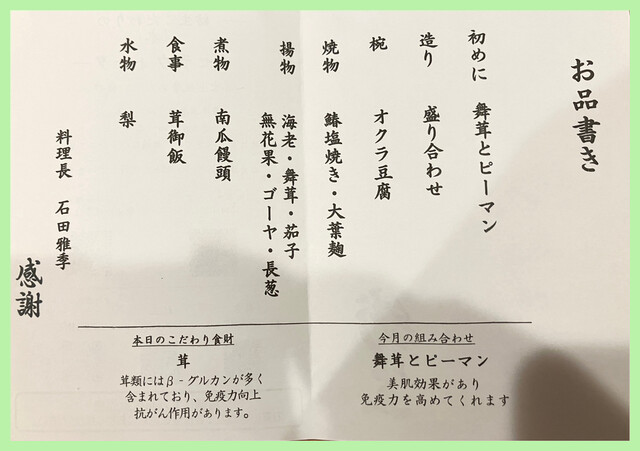 お品書き
初めに 舞茸とピーマン
造り 盛り合わせ
椀 オクラ豆腐
焼物 鰆塩焼き・大葉麹
揚物 海老・舞茸・茄子
無花果・ゴーヤ・長葱
煮物 南瓜饅頭
食事 茸御飯
水物 梨
料理長 石田雅季
感謝
今月の組み合わせ
舞茸とピーマン
美肌効果があり
免疫力を高めてくれます
本日のこだわり食財
茸
茸類にはβ‐グルカンが多く
含まれており、免疫力向上
抗がん作用があります。